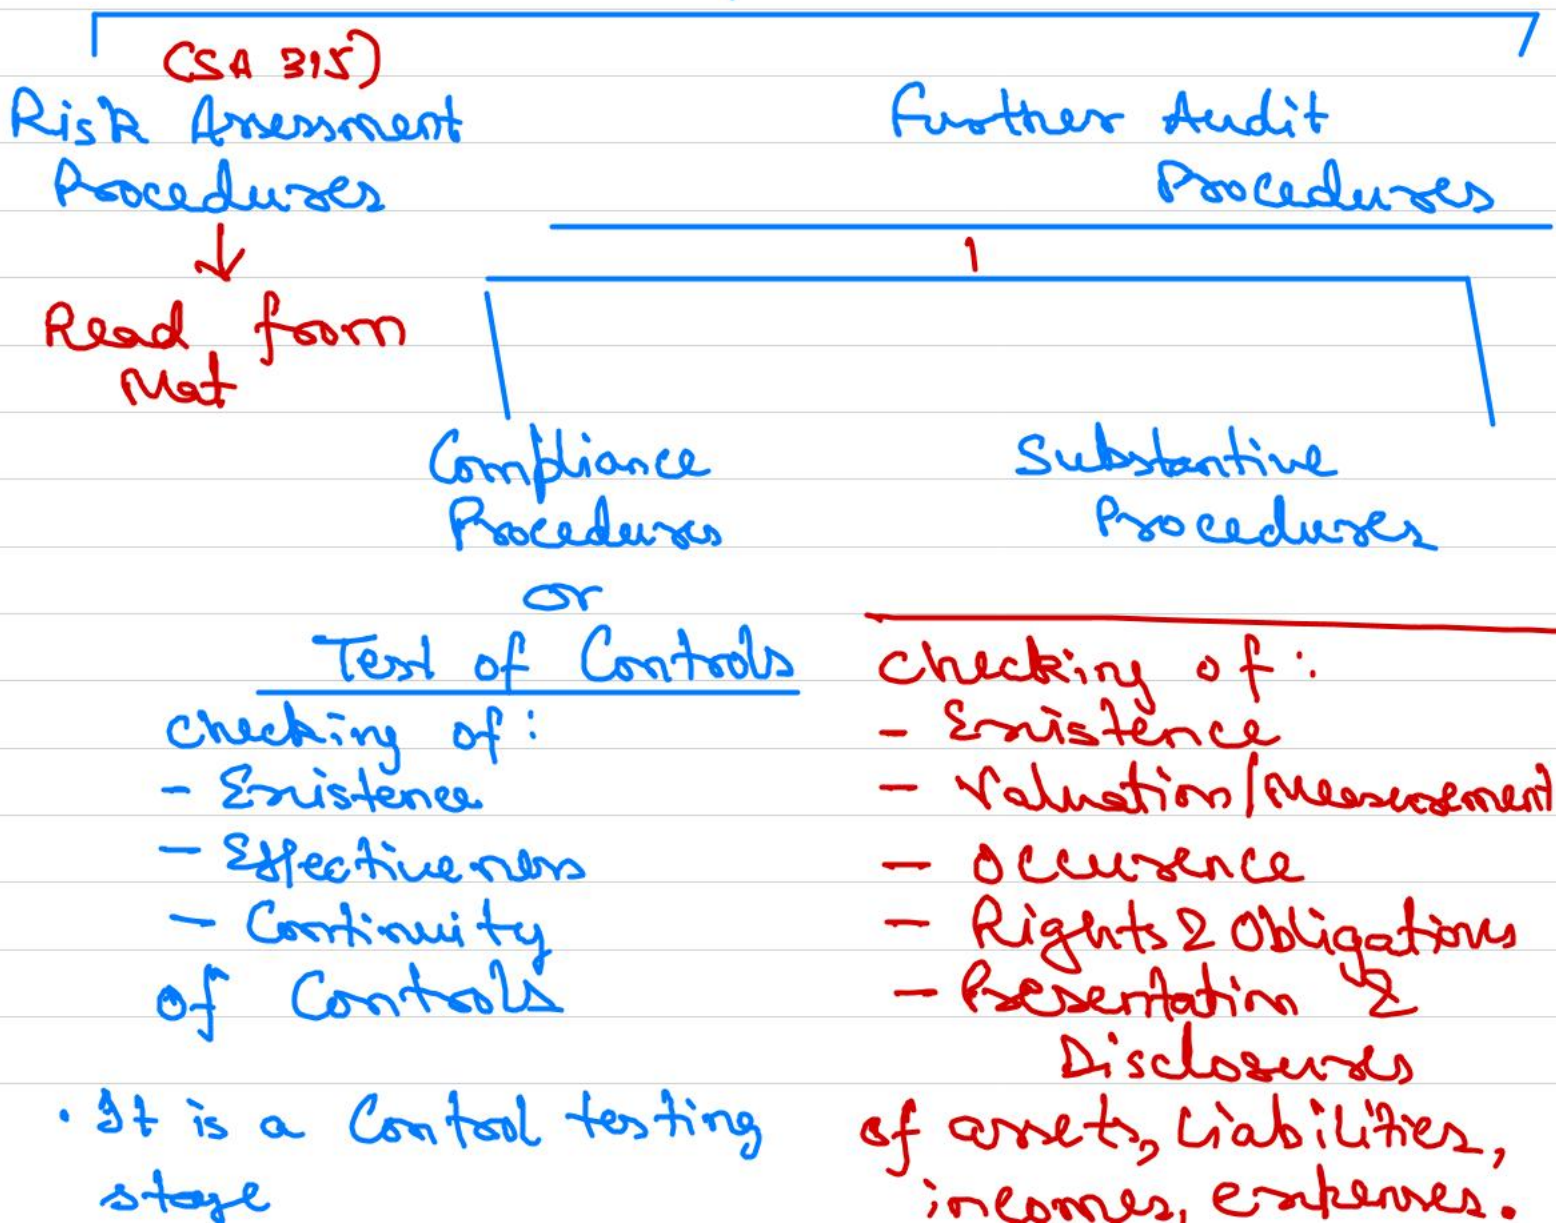 (SA 315)
Risk Assessment
Procedures
Read from
Mat
Further Audit
Procedures
Compliance
Procedures
or
Test of Controls
checking of:
- Existence
- Effectiveness
- Continuity
of Controls
• It is a Control testing
stage
Substantive
Procedures
checking of:
- Existence
- Valuation/Measurement
- Occurence
- Rights & Obligations
- Presentation &
Disclosures
of assets, Liabilities,
incomes, expenses.